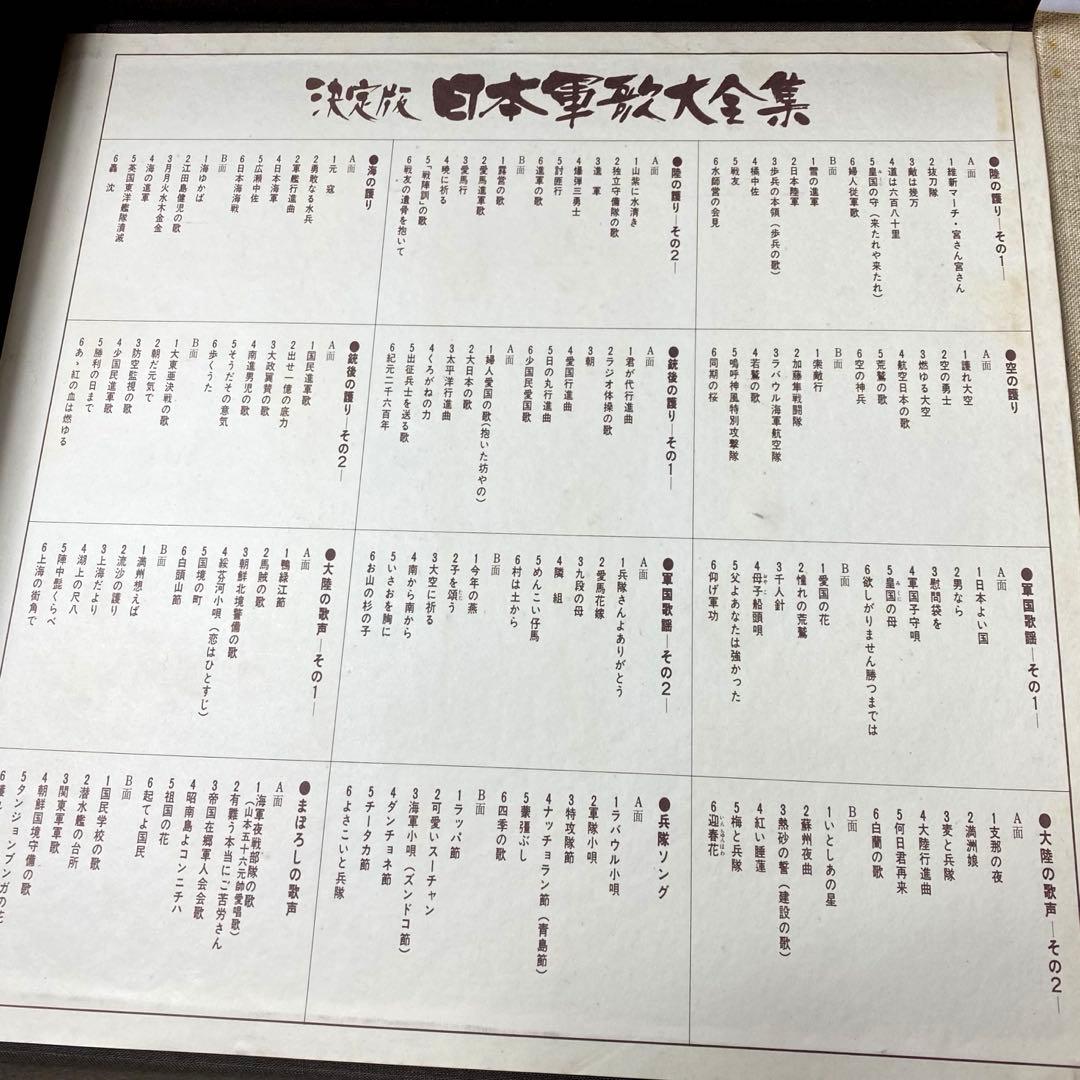 決定版 日本軍歌大全集
●陸の護り―その1―
A面
1維新マーチ・宮さん宮さん
2抜刀隊
3敵は幾万
4道は六百八十里
5皇国の守(来たれや来たれ)
6婦人従軍歌
B面
1雪の進軍
2日本陸軍
3歩兵の本領(歩兵の歌)
4橘中佐
5戦友
6水師営の会見
●陸の護り―その2―
A面
1山紫に水清き
2独立守備隊の歌
3進軍
4爆弾三勇士
5討匪行
6進軍の歌
B面
1露営の歌
2愛馬進軍歌
3愛馬行
4暁に祈る
5「戦陣訓」の歌
6戦友の遺骨を抱いて
●海の護り
A面
1元寇
2勇敢なる水兵
3軍艦行進曲
4日本海軍
5広瀬中佐
6日本海海戦
B面
1海ゆかば
2江田島健児の歌
3月月火水木金金
4海の進軍
5英国東洋艦隊潰滅
6轟沈
●空の護り
A面
1護れ大空
2空の勇士
3燃ゆる大空
4航空日本の歌
5荒鷲の歌
6空の神兵
B面
1索敵行
2加藤隼戦闘隊
3ラバウル海軍航空隊
4若鷲の歌
5嗚呼神風特別攻撃隊
6同期の桜
●銃後の護り―その1―
A面
1君が代行進曲
2ラジオ体操の歌
3朝
4愛国行進曲
5日の丸行進曲
6少国民愛国歌
A面
1婦人愛国の歌(抱いた坊やの)
2大日本の歌
3太平洋行進曲
4くろがねの力
5出征兵士を送る歌
6紀元二千六百年
●銃後の護り―その2―
A面
1国民進軍歌
2出せ一億の底力
3大政翼賛の歌
4南進男児の歌
5そうだその意気
6歩くうた
B面
1大東亜決戦の歌
2朝だ元気で
3防空監視の歌
4少国民進軍歌
5勝利の日まで
6あゝ紅の血は燃ゆる
●軍国歌謡―その1―
A面
1日本よい国
2男なら
3慰問袋を
4軍国子守唄
5皇国の母
6欲しがりません勝つまでは
B面
1愛国の花
2憧れの荒鷲
3千人針
4母子船頭唄
5父よあなたは強かった
6仰げ軍功
●軍国歌謡―その2―
A面
1兵隊さんよありがとう
2愛馬花嫁
3九段の母
4隣組
5めんこい仔馬
6村は土から
B面
1今年の燕
2子を頌う
3大空に祈る
4南から南から
5いさおを胸に
6お山の杉の子
●大陸の歌声―その1―
A面
1鴨緑江節
2馬賊の歌
3朝鮮北境警備の歌
4綏芬河小唄(恋はひとすじ)
5国境の町
6白頭山節
B面
1満州想えば
2流沙の護り
3上海だより
4湖上の尺八
5陣中髭くらべ
6上海の街角で
●大陸の歌声―その2―
A面
1支那の夜
2満洲娘
3麦と兵隊
4大陸行進曲
5何日君再来
6白蘭の歌
B面
1いとしあの星
2蘇州夜曲
3熱砂の誓(建設の歌)
4紅い睡蓮
5梅と兵隊
6迎春花
●兵隊ソング
A面
1ラバウル小唄
2軍隊小唄
3特攻隊節
4ナッチョラン節(青島節)
5蒙彊ぶし
6四季の歌
B面
1ラッパ節
2可愛いスーチャン
3海軍小唄(ズンドコ節)
4ダンチョネ節
5チータカ節
6よさこいと兵隊
●まぼろしの歌声
A面
1海軍夜戦部隊の歌
(山本五十六元帥愛唱歌)
2有難う本当にご苦労さん
3帝国在郷軍人会会歌
4昭南島よコンニチハ
5祖国の花
6起てよ国民
B面
1国民学校の歌
2潜水艦の台所
3関東軍軍歌
4朝鮮国境守備の歌
5タンジョンブンガの花